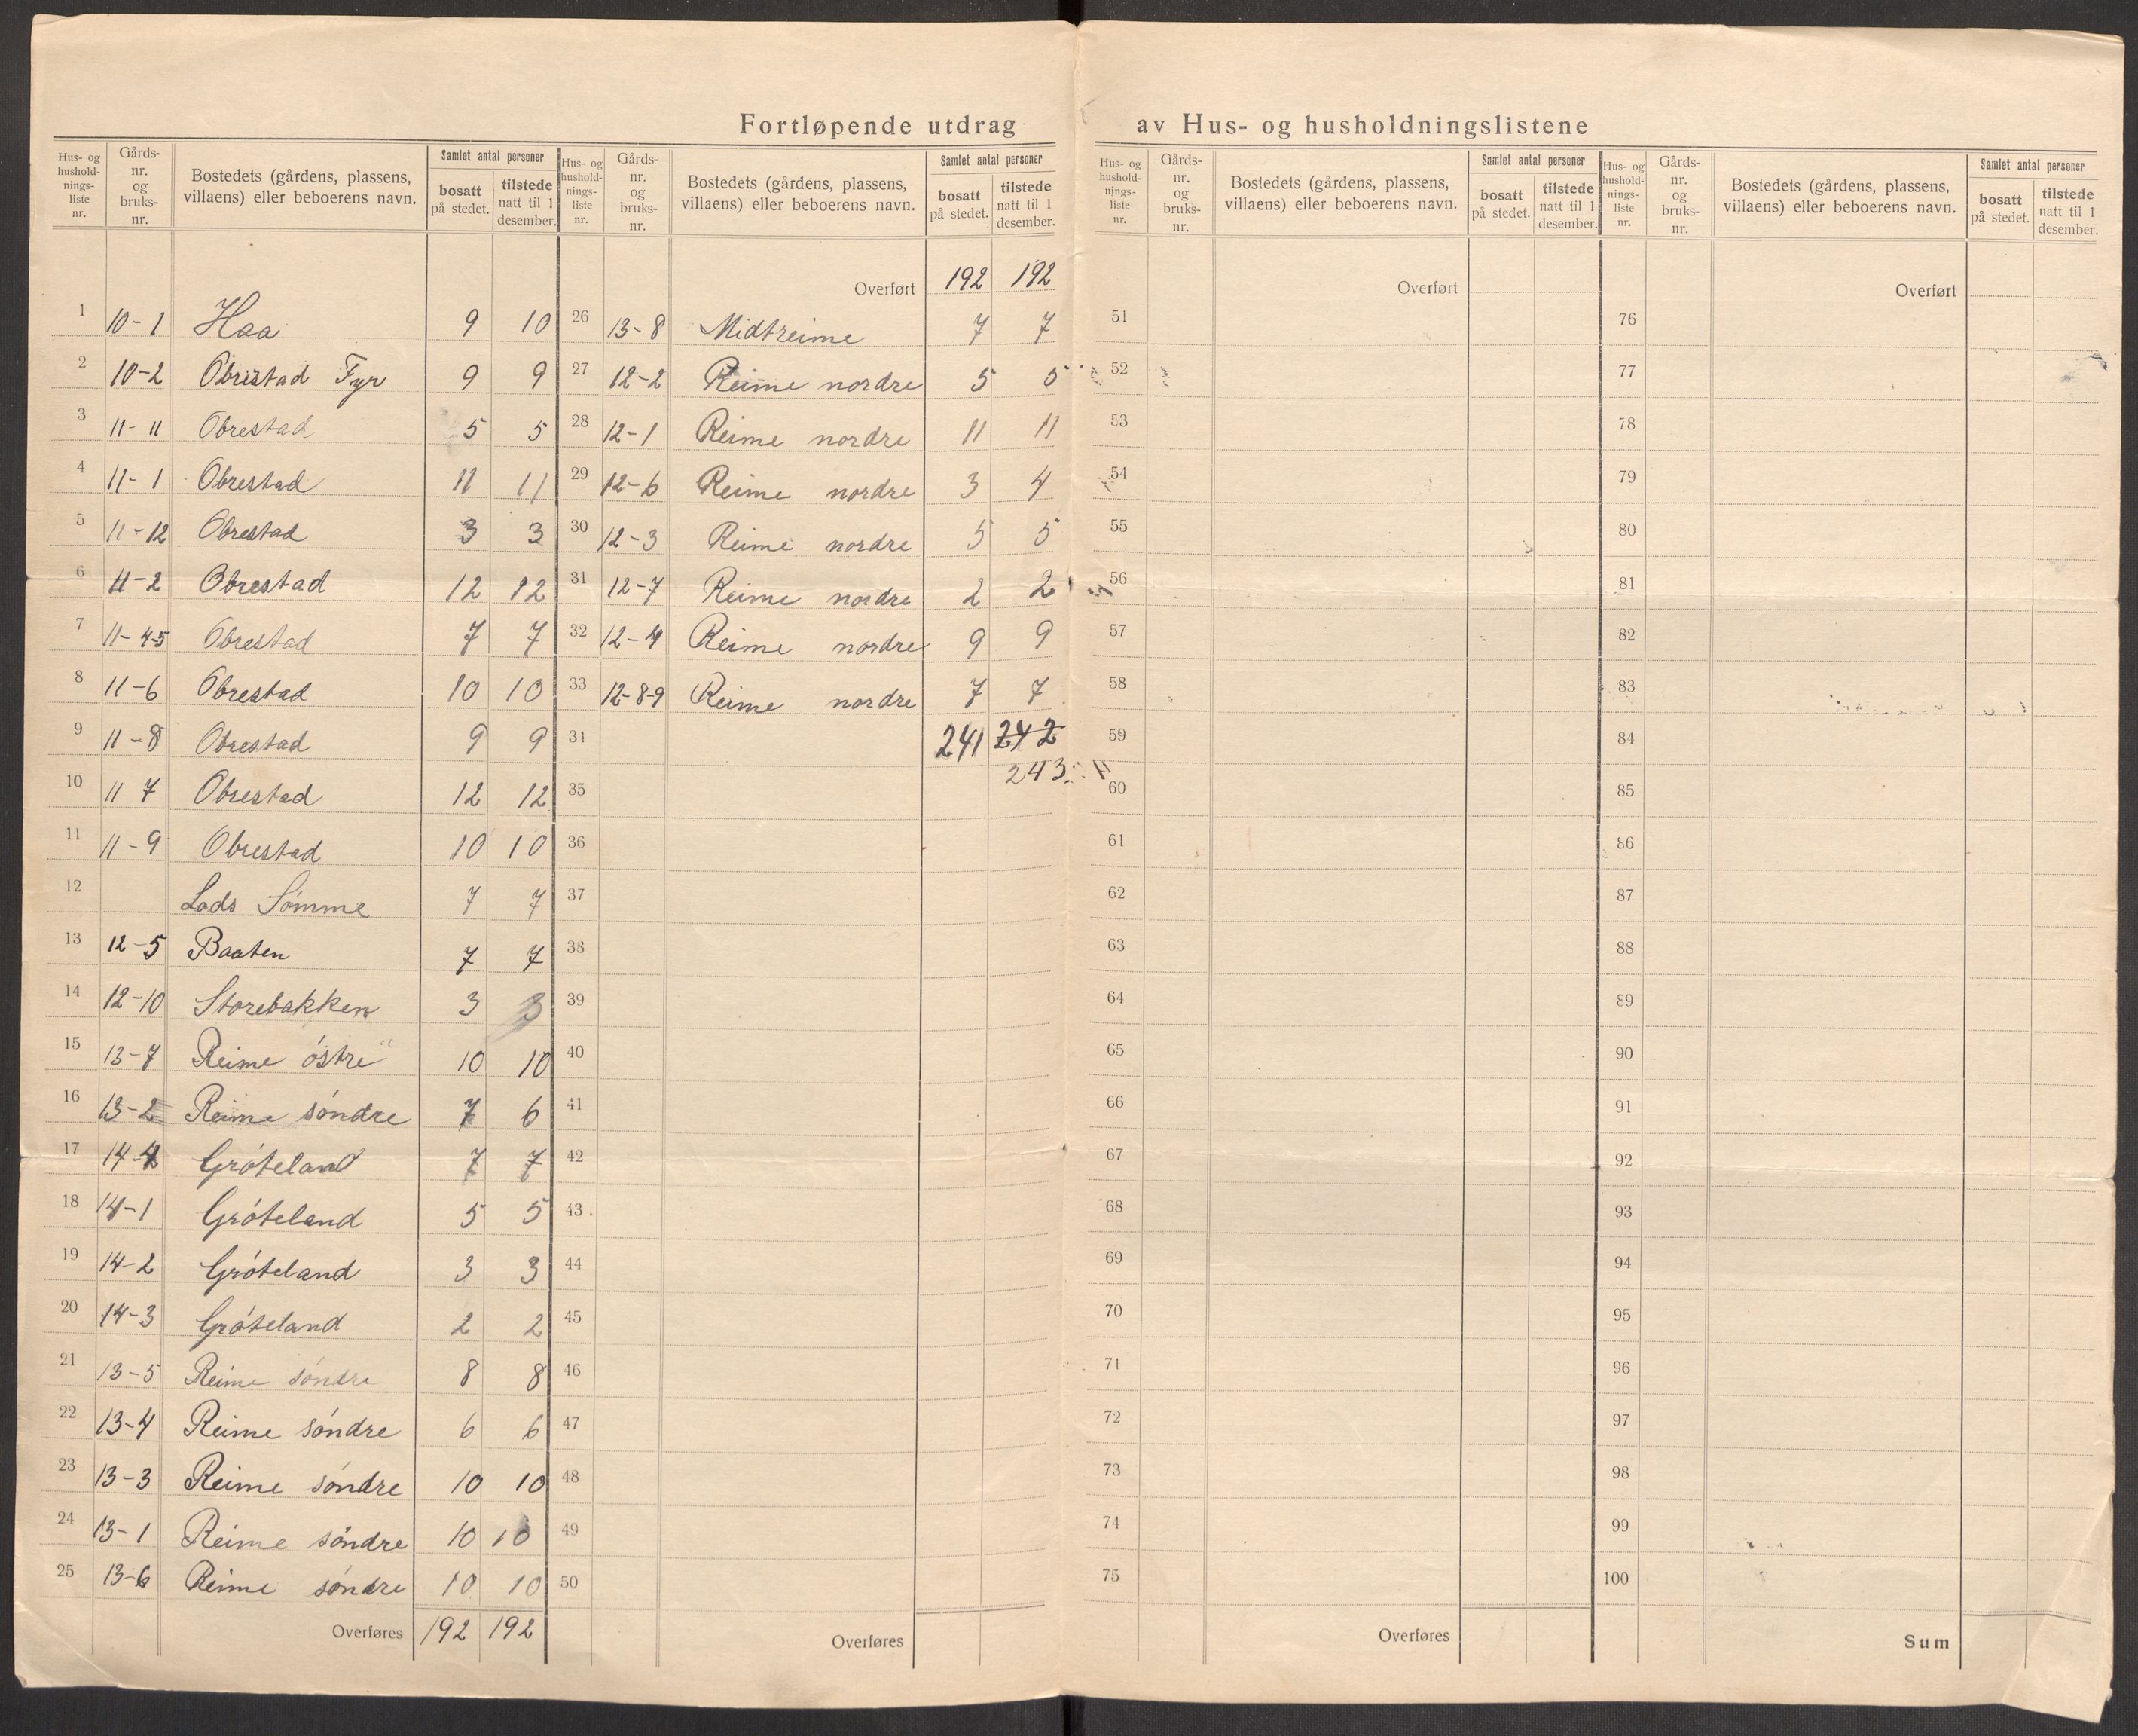 Fortløpende utdrag av Hus- og husholdningslistene
Hus- og hushold-nings-liste nr. | Gårds-nr. og bruks-nr. | Bostedets (gårdens, plassens, villaens) eller beboerens navn. | Samlet antal personer | bosatt på stedet. | tilstede natt til 1 desember.
1 10-1 Haa 9 10
2 10-2 Obristad Fyr 9 9
3 11-11 Obrestad 5 5
4 11-1 Obrestad 11 11
5 11-12 Obrestad 3 3
6 11-2 Obrestad 12 12
7 11-4-5 Obrestad 7 7
8 11-6 Obrestad 10 10
9 11-8 Obrestad 9 9
10 11 7 Obrestad 12 12
11 11-9 Obrestad 10 10
12 Lads Sömme 7 7
13 12-5 Baaten 7 7
14 12-10 Storebakken 3 3
15 13-7 Reime óstre 10 10
16 13-2 Reime sóndre 7 6
17 14-4 Gróteland 7 7
18 14-1 Gróteland 5 5
19 14-2 Gróteland 3 3
20 14-3 Gróteland 2 2
21 13-5 Reime sóndre 8 8
22 13-4 Reime sóndre 6 6
23 13-3 Reime sóndre 10 10
24 13-1 Reime sóndre 10 10
25 13-6 Reime sóndre 10 10
Overføres 192 192
Hus- og hushold-nings-liste nr. | Gårds-nr. og bruks-nr. | Bostedets (gårdens, plassens, villaens) eller beboerens navn. | Samlet antal personer | bosatt på stedet. | tilstede natt til 1 desember.
Overført 192 192
26 13-8 Midtreime 7 7
27 12-2 Reime nordre 5 5
28 12-1 Reime nordre 11 11
29 12-6 Reime nordre 3 4
30 12-3 Reime nordre 5 5
31 12-7 Reime nordre 2 2
32 12-4 Reime nordre 9 9
33 12-8-9 Reime nordre 7 7
34 241 242
243
35
36
37
38
39
40
41
42
43
44
45
46
47
48
49
50
Overføres
Hus- og hushold-nings-liste nr. | Gårds-nr. og bruks-nr. | Bostedets (gårdens, plassens, villaens) eller beboerens navn. | Samlet antal personer | bosatt på stedet. | tilstede natt til 1 desember.
Overført
51
52
53
54
55
56
57
58
59
60
61
62
63
64
65
66
67
68
69
70
71
72
73
74
75
Overføres
Hus- og hushold-nings-liste nr. | Gårds-nr. og bruks-nr. | Bostedets (gårdens, plassens, villaens) eller beboerens navn. | Samlet antal personer | bosatt på stedet. | tilstede natt til 1 desember.
Overført
76
77
78
79
80
81
82
83
84
85
86
87
88
89
90
91
92
93
94
95
96
97
98
99
100
Sum